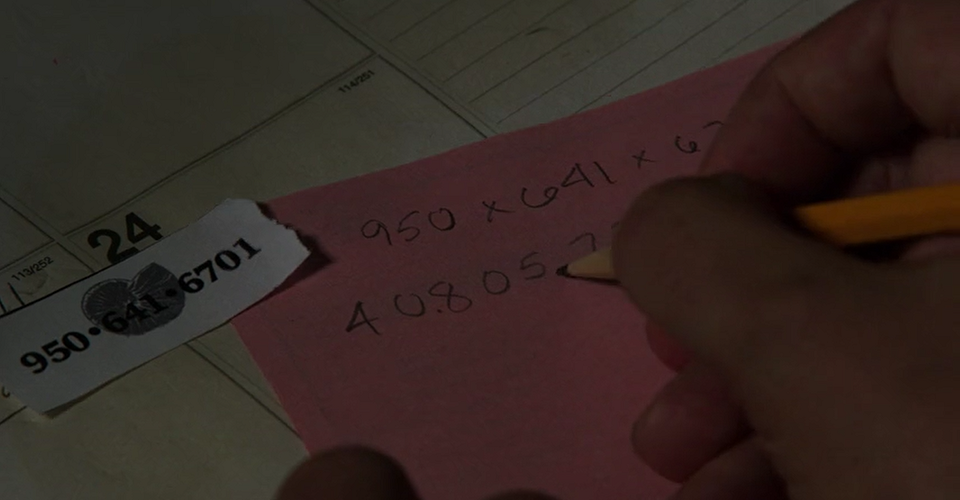 114/251
24
113/252
950•641•6701
950 × 641 × 67
408057